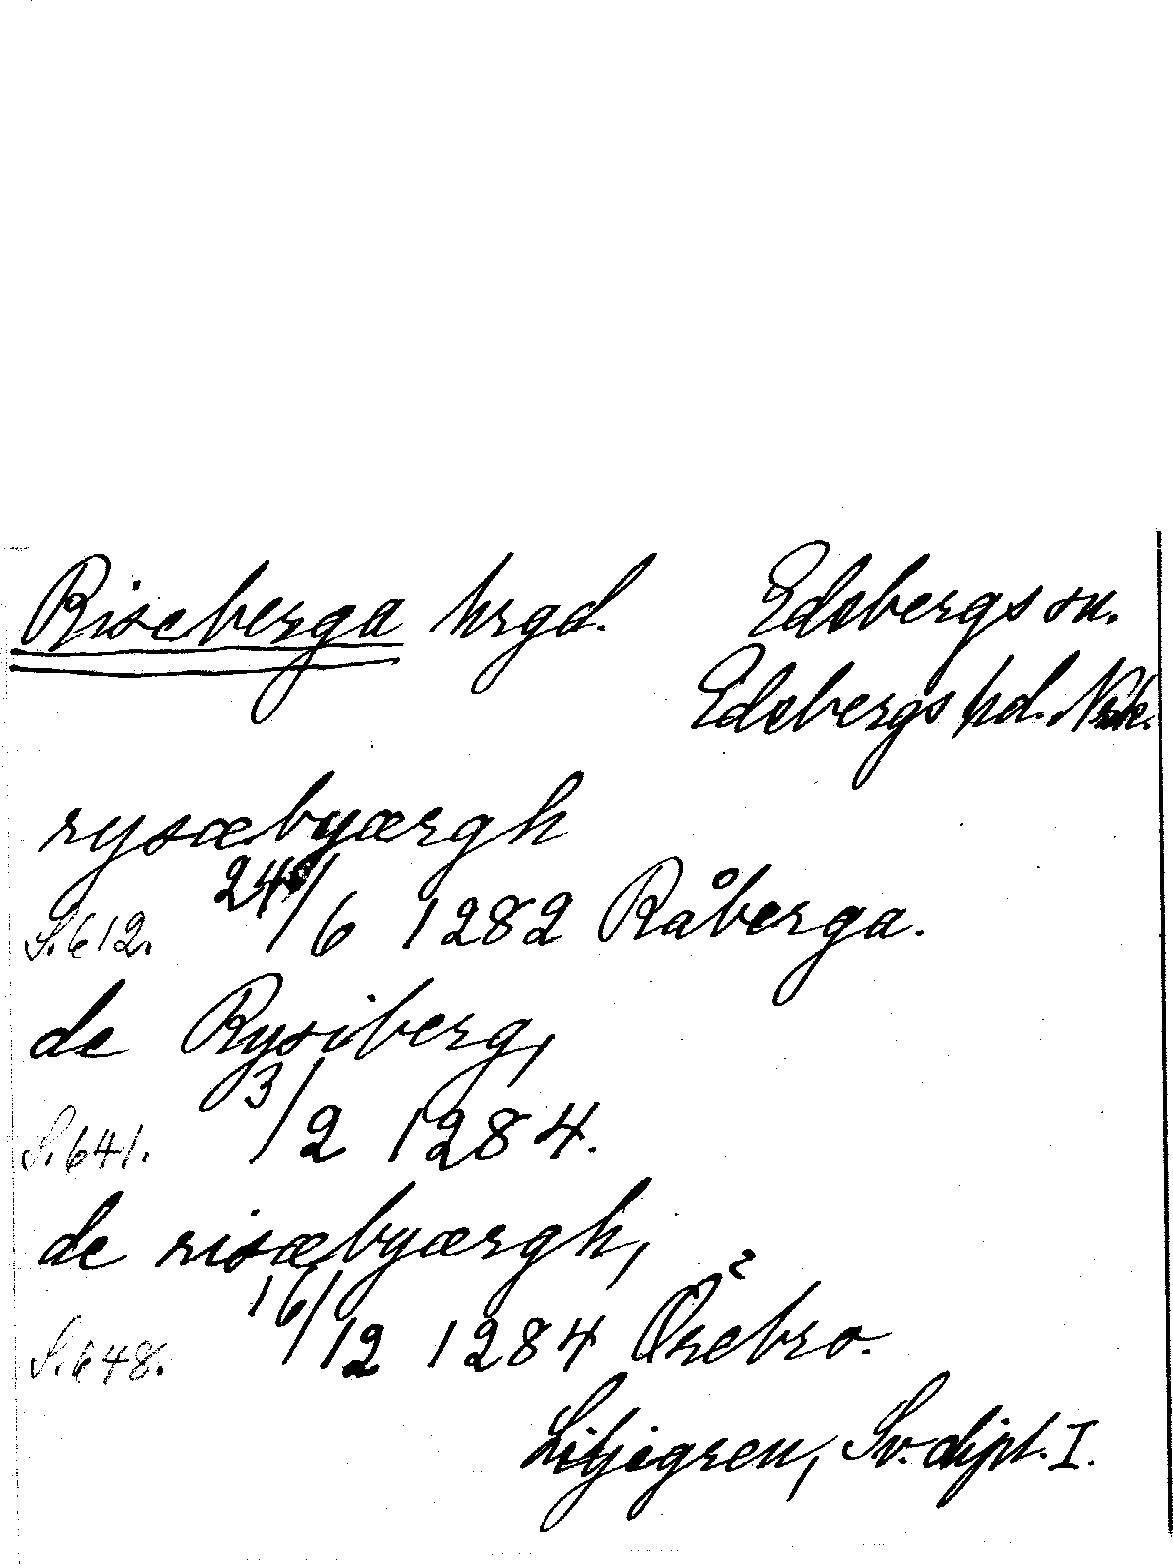 Riseberga hrgd. Edsbergs sn.
Edsbergs hd. Närk.
rysæbyærgh
S. 612. 24/6 1282 Råberga.
de Rysiberg,
S. 641. 3/2 1284.
de risæbyærgh,
S. 648. 16/12 1284 Örebro.
Liljegren, Sv. dipl. I.